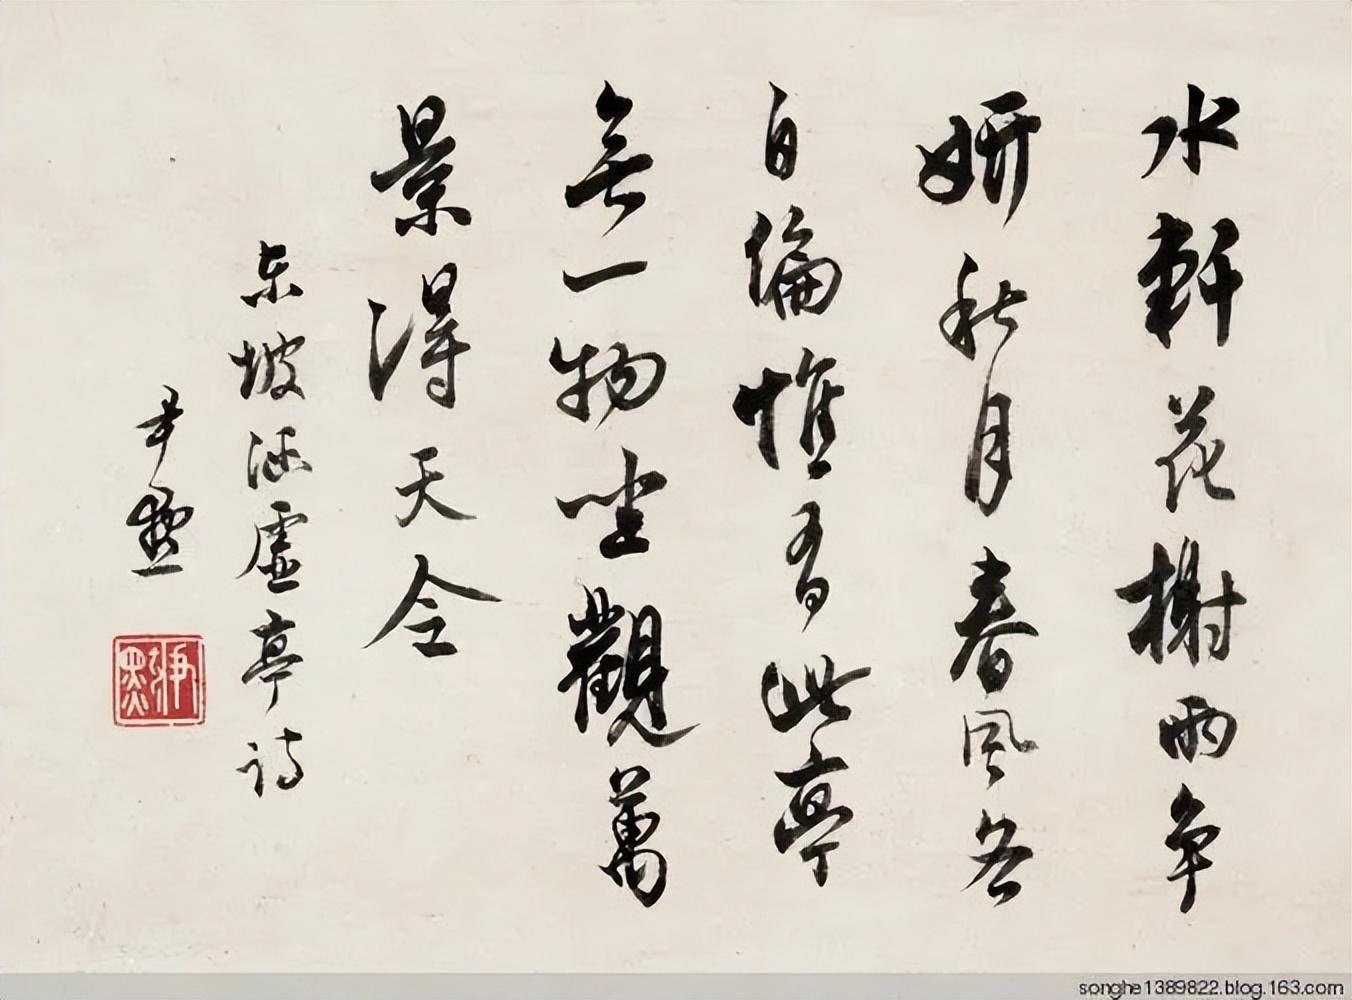 水軒花榭兩爭
妍秋月春風各
自偏惟有此亭
無一物坐觀萬
景得天全
東坡涵虛亭詩
尹默
songhe1389822.blog.163.com